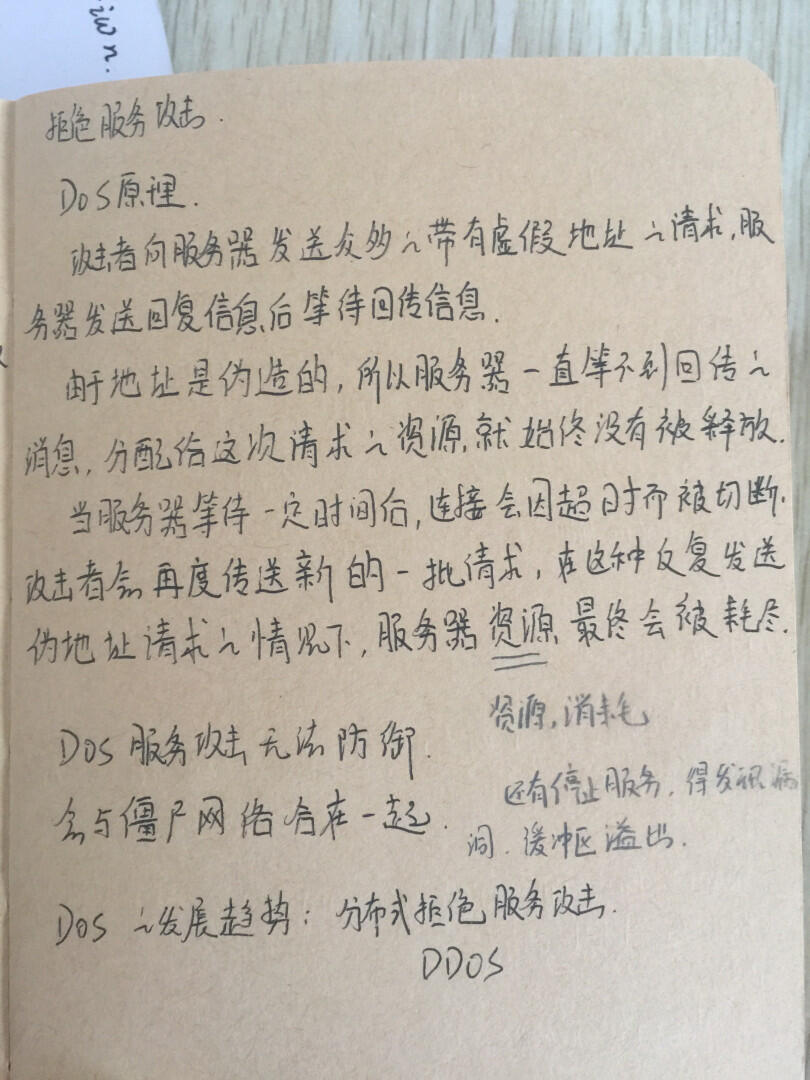 拒绝服务攻击.
DoS原理.
攻击者向服务器发送众多之带有虚假地址之请求,服
务器发送回复信息后等待回传信息.
由于地址是伪造的,所以服务器一直等不到回传之
消息,分配给这次请求之资源,就始终没有被释放.
当服务器等待一定时间后,连接会因超时而被切断.
攻击者会再度传送新的一批请求,在这种反复发送
伪地址请求之情况下,服务器资源最终会被耗尽.
资源,消耗
DoS服务攻击无法防御.
还有停止服务.得发现漏
会与僵尸网络合在一起.
洞.缓冲区溢出.
DoS之发展趋势:分布式拒绝服务攻击.
DDOS